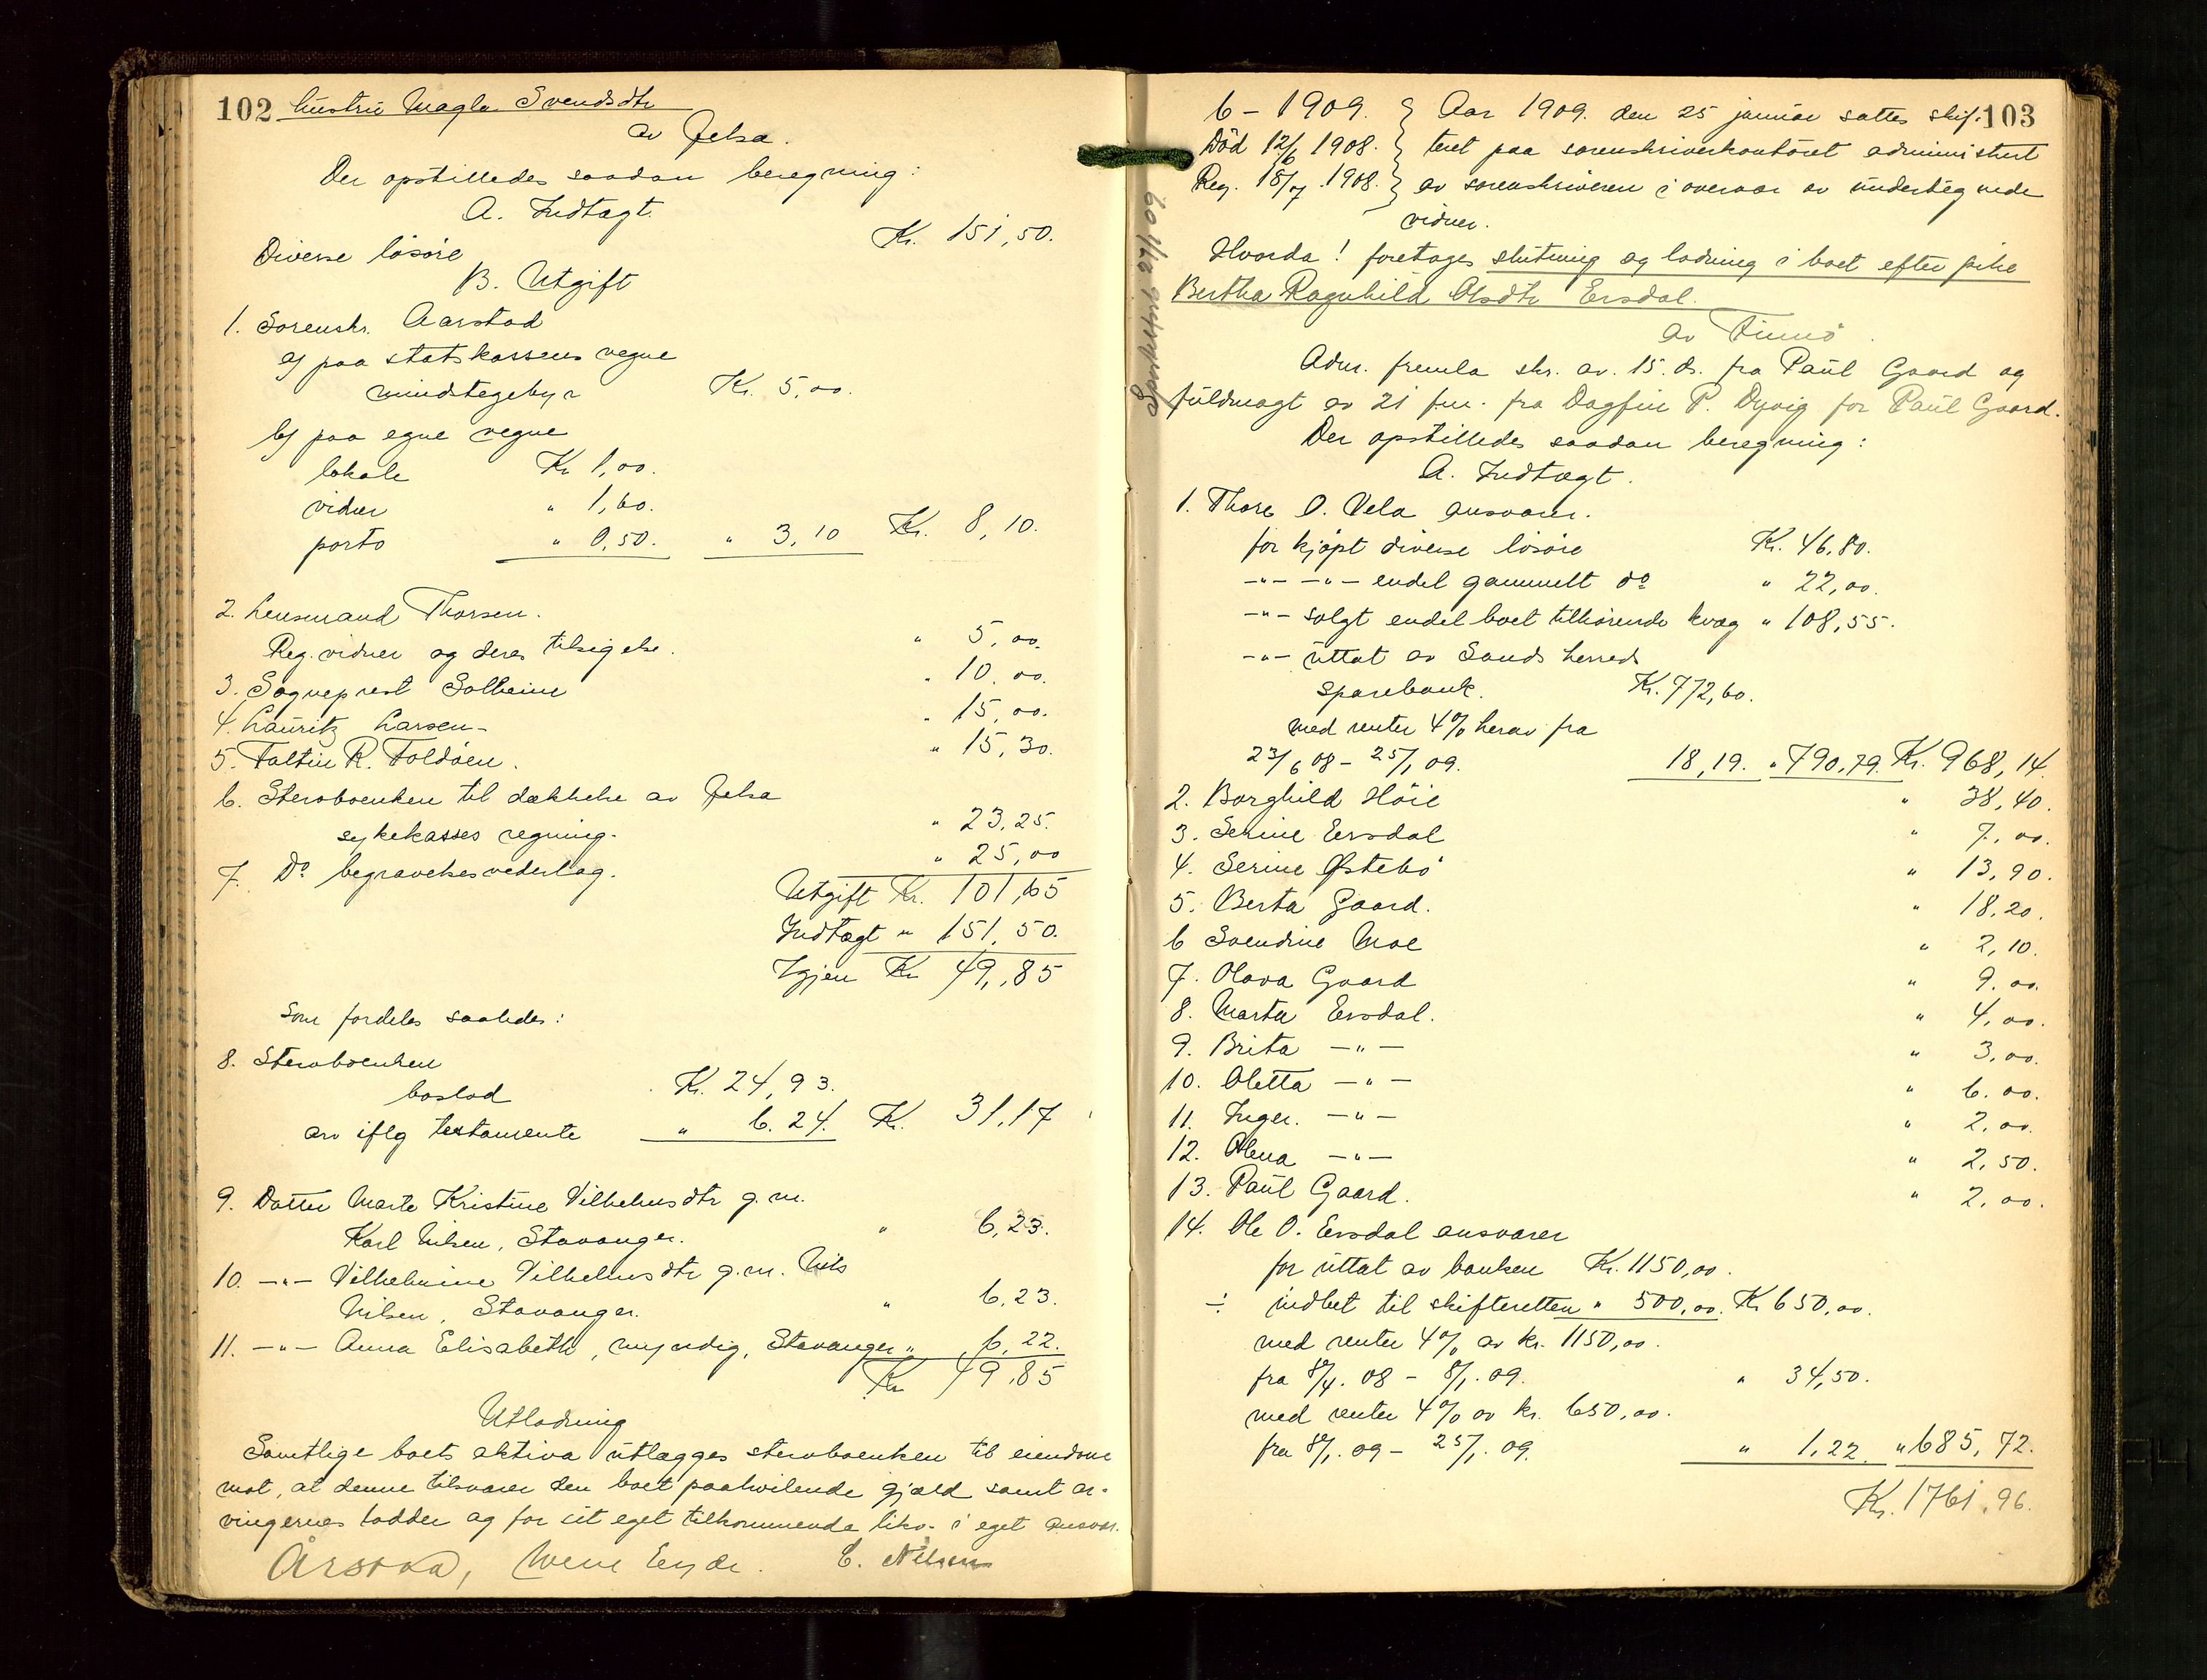 102 hustru Magla Svendsdtr
av Jelsa.
Der opstilledes saadan beregning:
A. Indtægt.
Diverse løsøre Kr. 151,50.
B. Utgift
1. Sorenskr. Aarstad
a) paa statskassens vegne
mindstegebyr Kr. 5,00.
b) paa egne vegne
lokale Kr 1,00.
vidner " 1,60.
porto " 0,50. " 3,10 Kr. 8,10.
2. Lensmand Thorsen.
Reg. vidner og deres tilsigelse. " 5,00.
3. Sogneprest Solheim " 10.00.
4. Lauritz Larsen - " 15,00.
5. Faltin R. Foldøen. " 15,30.
6. Stervboenken til dækkelse av Jelsa
sykekasses regning. " 23,25.
7. Do begravelsesvederlag. " 25,00
Utgift Kr. 101,65
Indtægt " 151,50.
Igjen Kr 49,85
Som fordeles saaledes:
8. Stervboenken
boslod Kr. 24,93.
arv iflg testamente " 6.24. Kr. 31,17
9. Datter Marte Kristine Vilhelmsdtr g. m.
Karl Nilsen, Stavanger. " 6,23.
10. -"- Vilhelmine Vilhelmsdtr g. m. Nils
Nilsen, Stavanger. " 6,23.
11. -"- Anna Elisabeth, myndig, Stavanger " 6,22.
Kr 49,85
Utlodning
Samtlige boets aktiva utlægges stervboenken til eiendom
mot, at denne tilsvarer den boet paahvilende gjæld samt ar-
vingernes lodder og for sit eget tilkommende likv. i eget ansvar.
Årstad, E. Nilsen
6 - 1909. } Aar 1909. den 25 januar sattes skif- 103
Død 12/6 1908. } teret paa sorenskriverkontoret administrert
Reg. 18/7 1908. } av sorenskriveren i overvær av undertegnede
vidner.
Hvorda! foretages slutning og lodning i boet efter pike
Bertha Ragnhild Olsdtr Ersdal.
av Finnø.
Adm. fremla skr. av. 15. ds. fra Paul Gaard og
fuldmagt av 21 fm. fra Dagfin P. Dyvig for Paul Gaard.
Der opstilledes saadan beregning:
A. Indtægt.
1. Thore O. Vela ansvarer.
for kjøpt diverse løsøre Kr. 46,80.
-"- -"- endel gammelt do " 22,00.
-"- solgt endel boet tilhørende kvæg " 108,55.
-"- uttat av Sands herreds
sparebank. Kr. 772,60.
med renter 4% herav fra
23/6 08 - 25/1 09. 18,19. " 790,79. Kr. 968,14.
2. Borghild Høie " 38,40.
3. Serine Ersdal " 7,00.
4. Serine Østebø " 13,90.
5. Berta Gaard. " 18,20.
6 Svendine Moe " 2,10.
7. Olava Gaard " 9.00.
8. Marta Ersdal. " 4,00.
9. Brita -"- " 3,00.
10. Oletta -"- " 6.00.
11. Inger. -"- " 2,00.
12. Olena -"- " 2,50.
13. Paul Gaard. " 2,00.
14. Ole O. Ersdal ansvarer
for uttat av banken Kr. 1150,00.
÷ indbet til skifteretten " 500,00. Kr 650,00.
med renter 4% av kr. 1150,00.
fra 8/4. 08 - 8/1. 09. " 34,50.
med renter 4% av kr. 650,00.
fra 8/1. 09 - 25/1. 09. " 1,22 " 685,72.
Kr. 1761,96.